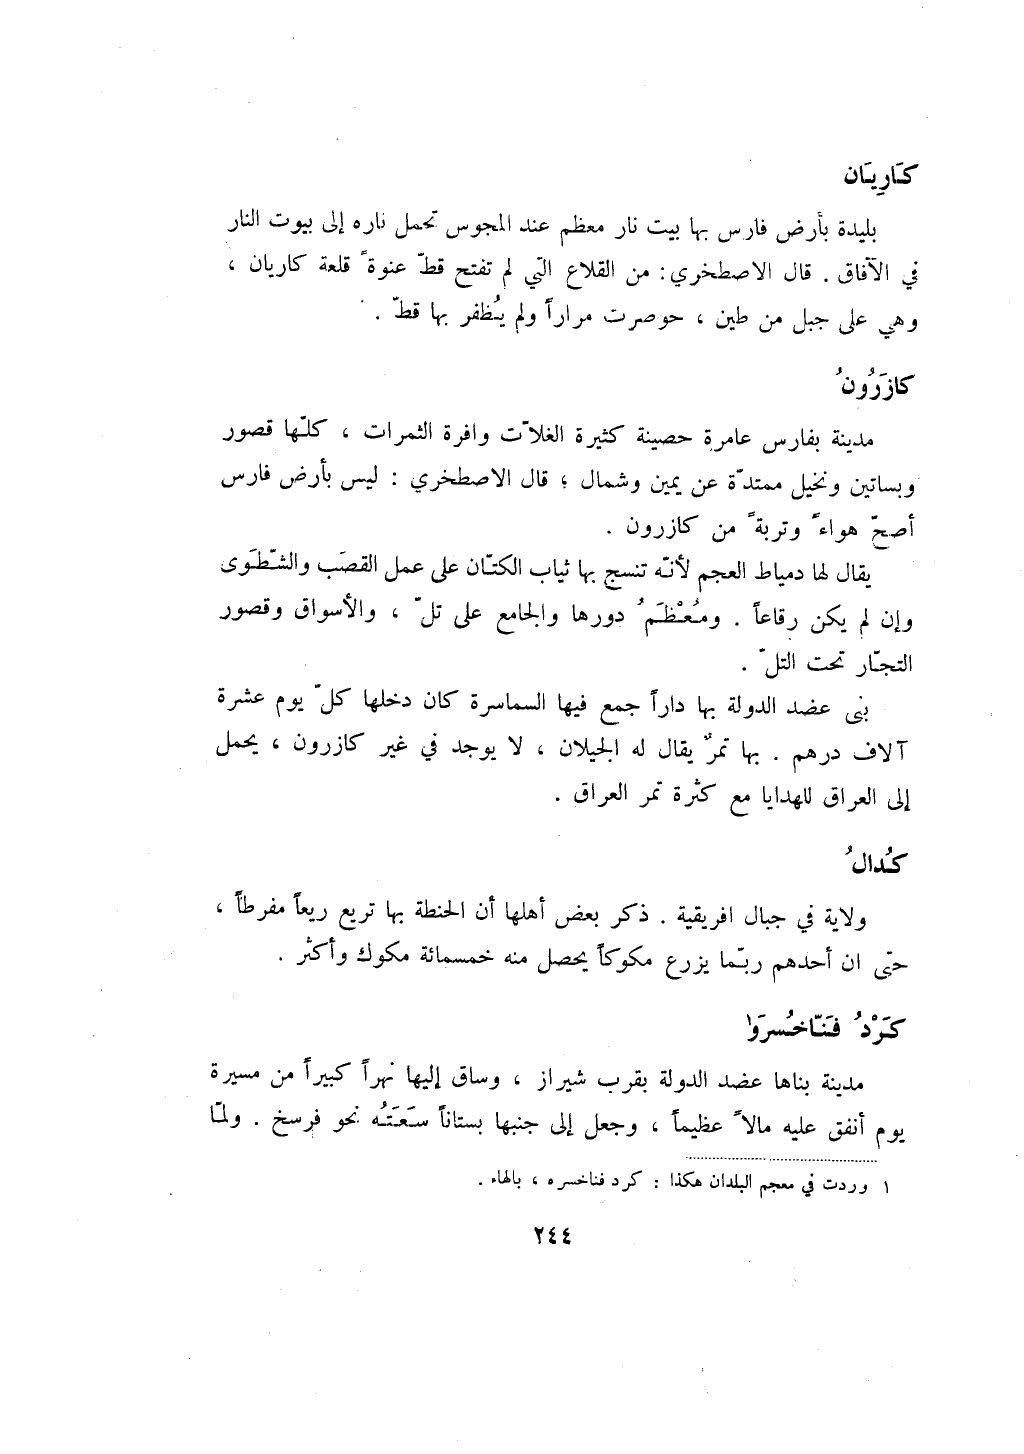 كَارِيَان
بليدة بأرض فارس بها بيت نار معظم عند المجوس تحمل ناره إلى بيوت النار
في الآفاق . قال الاصطخري : من القلاع التي لم تفتح قطّ عنوةً قلعة كاريان ،
وهي على جبل من طين ، حوصرت مراراً ولم يُظفر بها قطّ .
كازَرُونُ
مدينة بفارس عامرة حصينة كثيرة الغلاّت وافرة الثمرات ، كلّها قصور
وبساتين ونخيل ممتدّة عن يمين وشمال ؛ قال الاصطخري : ليس بأرض فارس
أصحّ هواءً وتربةً من كازرون .
يقال لها دمياط العجم لأنّه تنسج بها ثياب الكتّان على عمل القصَب والشّطَوى
وإن لم يكن رقاعاً . ومُعْظَمُ دورها والجامع على تلّ ، والأسواق وقصور
التجّار تحت التلّ .
بنى عضد الدولة بها داراً جمع فيها السماسرة كان دخلها كلّ يوم عشرة
آلاف درهم . بها تمرٌ يقال له الجيلان ، لا يوجد في غير كازرون ، يحمل
إلى العراق للهدايا مع كثرة تمر العراق .
كُدالُ
ولاية في جبال افريقية . ذكر بعض أهلها أن الحنطة بها تريع ريعاً مفرطاً ،
حتّى ان أحدهم ربّما يزرع مكوكاً يحصل منه خمسمائة مكوك وأكثر .
كَرْدُ فَنّاخُسرَوا
مدينة بناها عضد الدولة بقرب شيراز ، وساق إليها نهراً كبيراً من مسيرة
يوم أنفق عليه مالاً عظيماً ، وجعل إلى جنبها بستاناً سَعَتُه نحو فرسخ . ولمّا
١ وردت في معجم البلدان هكذا : كرد فناخسره ، بالهاء .
٢٤٤